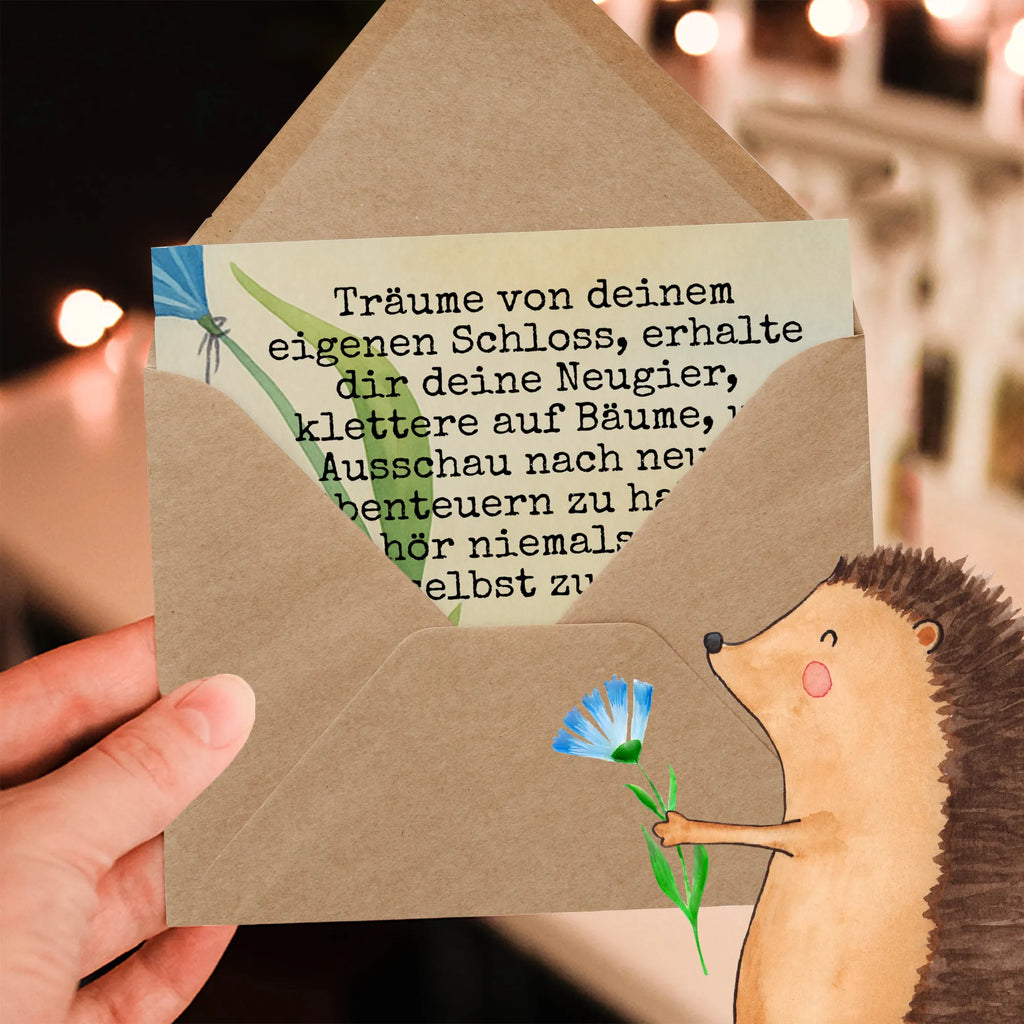 Träume von deinem
eigenen Schloss, erhalte
dir deine Neugier,
klettere auf Bäume,
Ausschau nach
zu
hör niemals
zu